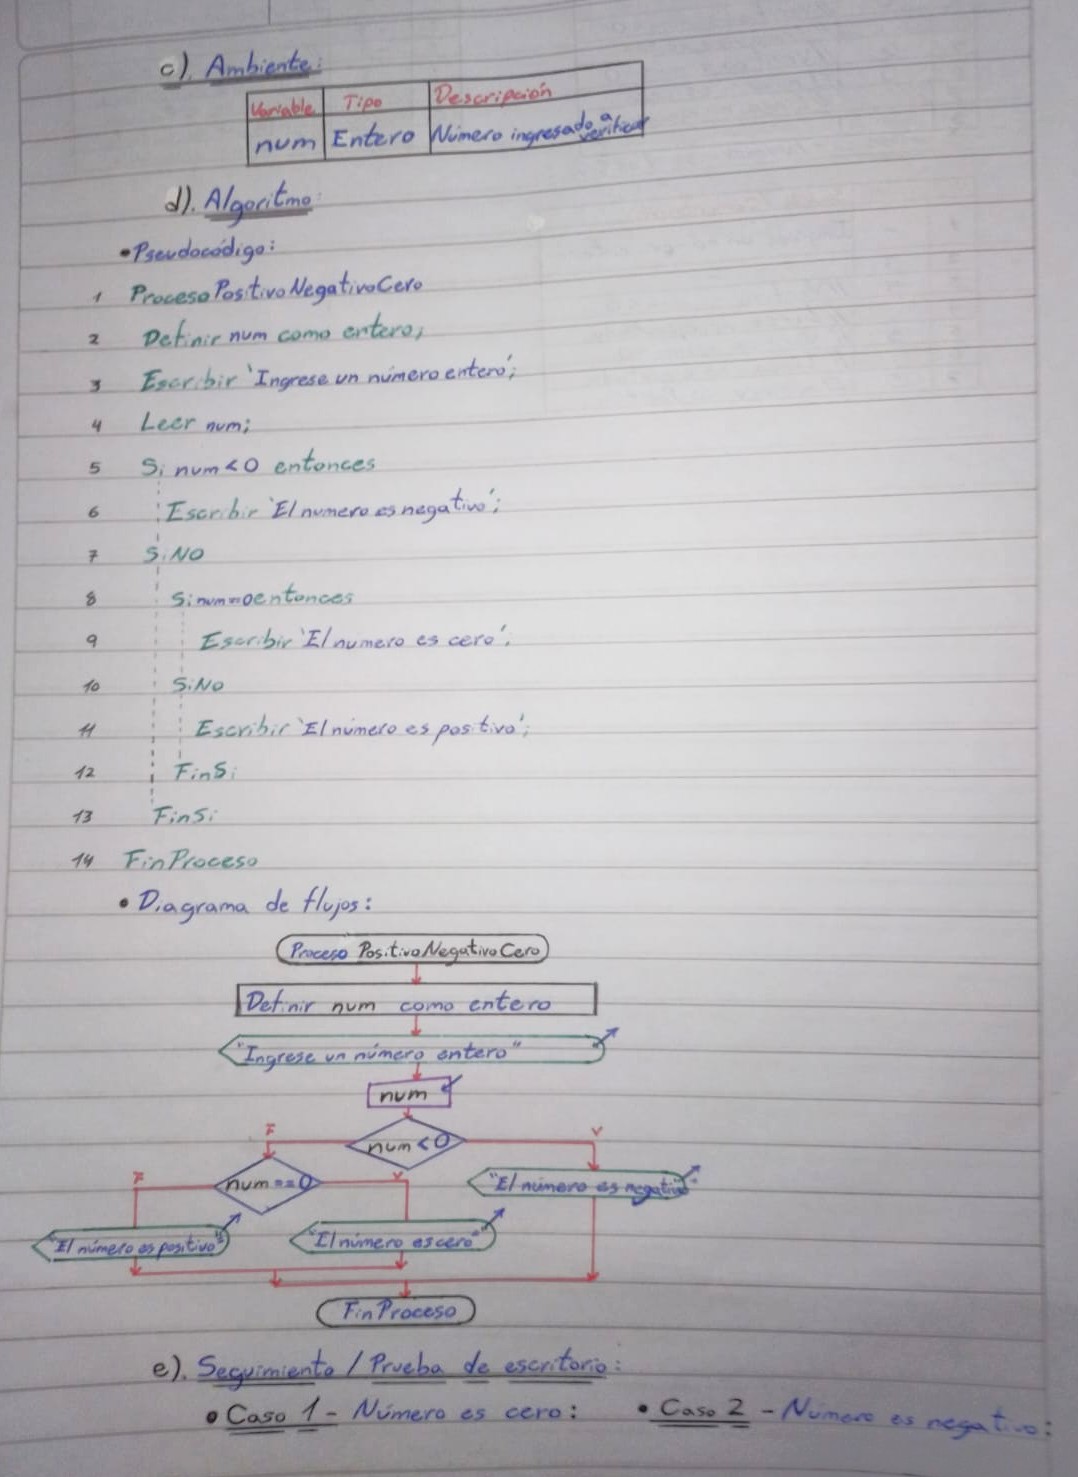 c). Ambiente:
Variable Tipo Descripción
num Entero Número ingresado a verificar
d). Algoritmo:
• Pseudocódigo:
1 Proceso PositivoNegativoCero
2 Definir num como entero;
3 Escribir 'Ingrese un número entero';
4 Leer num;
5 Si num<0 entonces
6 Escribir 'El numero es negativo';
7 SiNO
8 Si num==0 entonces
9 Escribir 'El numero es cero';
10 SiNo
11 Escribir 'El número es positivo';
12 FinSi
13 FinSi
14 FinProceso
• Diagrama de flujos:
Proceso PositivoNegativoCero
Definir num como entero
"Ingrese un número entero"
num
F num<0 V
F num==0 V "El número es negativo"
"El número es positivo" "El número es cero"
FinProceso
e). Seguimiento / Prueba de escritorio:
• Caso 1 - Número es cero: • Caso 2 - Número es negativo: